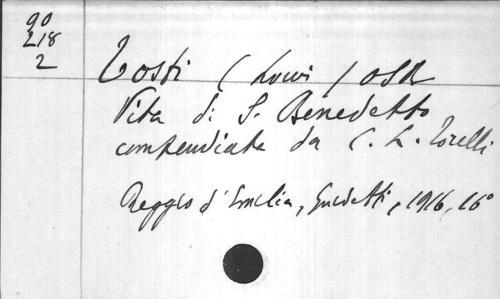 90
218
2
Tosti (Luigi) OSB
Vita di S. Benedetto
compendiata da C. L. Torelli
Reggio d'Emilia, Guidetti, 1916, 16°